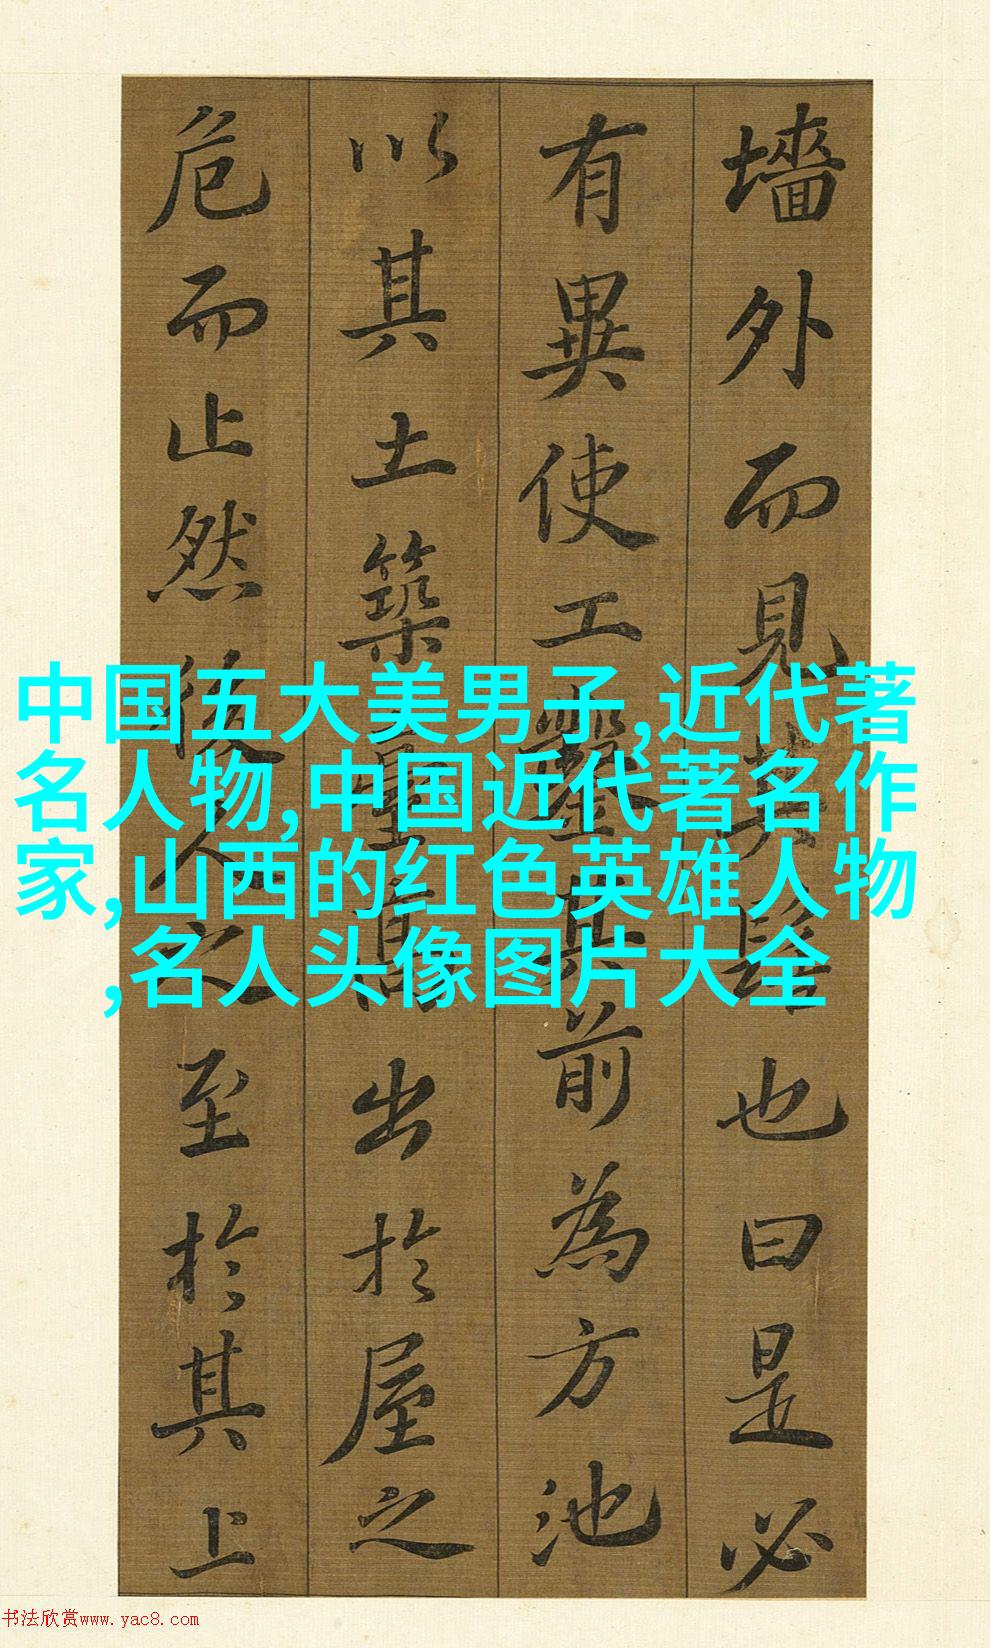 墻外而見其髻也曰是必
有異使工鑿其前為方池
以其土築臺高出於屋之
危而止然後人之至於其上
中国五大美男子,近代著
名人物,中国近代著名作
家,山西的红色英雄人物
,名人头像图片大全
书法欣赏www.yac8.com